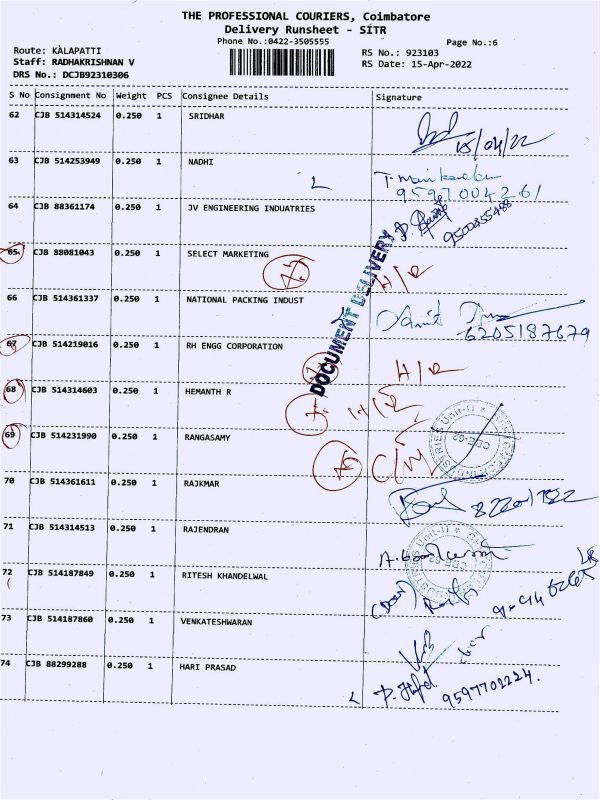 THE PROFESSIONAL COURIERS, Coimbatore
Delivery Runsheet - SITR
Phone No.:0422-3505555
Page No.:6
Route: KALAPATTI
RS No.: 923103
Staff: RADHAKRISHNAN V
RS Date: 15-Apr-2022
DRS No.: DCJB92310306
S No Consignment No Weight PCS Consignee Details Signature
62 CJB 514314524 0.250 1 SRIDHAR
15/04/22
63 CJB 514253949 0.250 1 NADHI
9597004261
64 CJB 88361174 0.250 1 JV ENGINEERING INDUATRIES
65 CJB 88081043 0.250 1 SELECT MARKETING
H/R
66 CJB 514361337 0.250 1 NATIONAL PACKING INDUST
6205187679
67 CJB 514219016 0.250 1 RH ENGG CORPORATION
H/R
DOCUMENT DELIVERY
68 CJB 514314603 0.250 1 HEMANTH R
H/R
69 CJB 514231990 0.250 1 RANGASAMY
70 CJB 514361611 0.250 1 RAJKMAR
71 CJB 514314513 0.250 1 RAJENDRAN
72 CJB 514187849 0.250 1 RITESH KHANDELWAL
73 CJB 514187860 0.250 1 VENKATESHWARAN
74 CJB 88299288 0.250 1 HARI PRASAD
9597702224.